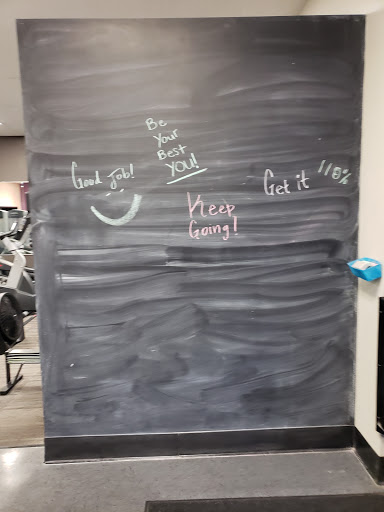 Be
Your
Best
YOU!
Good Job!
Keep
Going!
Get it
110%